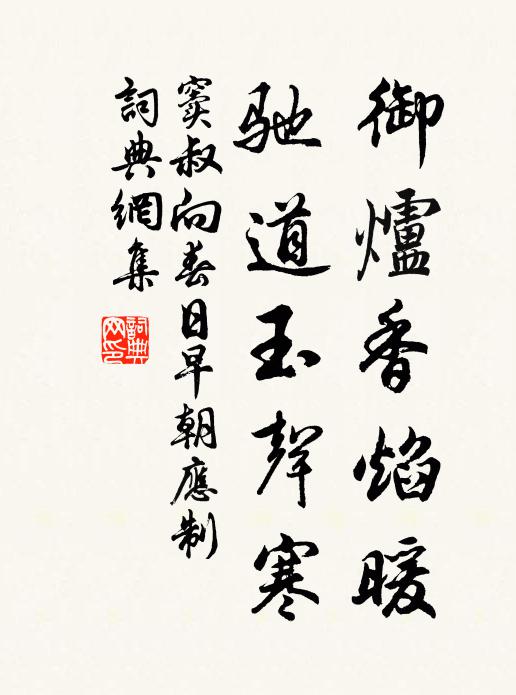 御爐香焰暖
馳道玉聲寒
竇叔向春日早朝應制
詞典網集
詞典网印